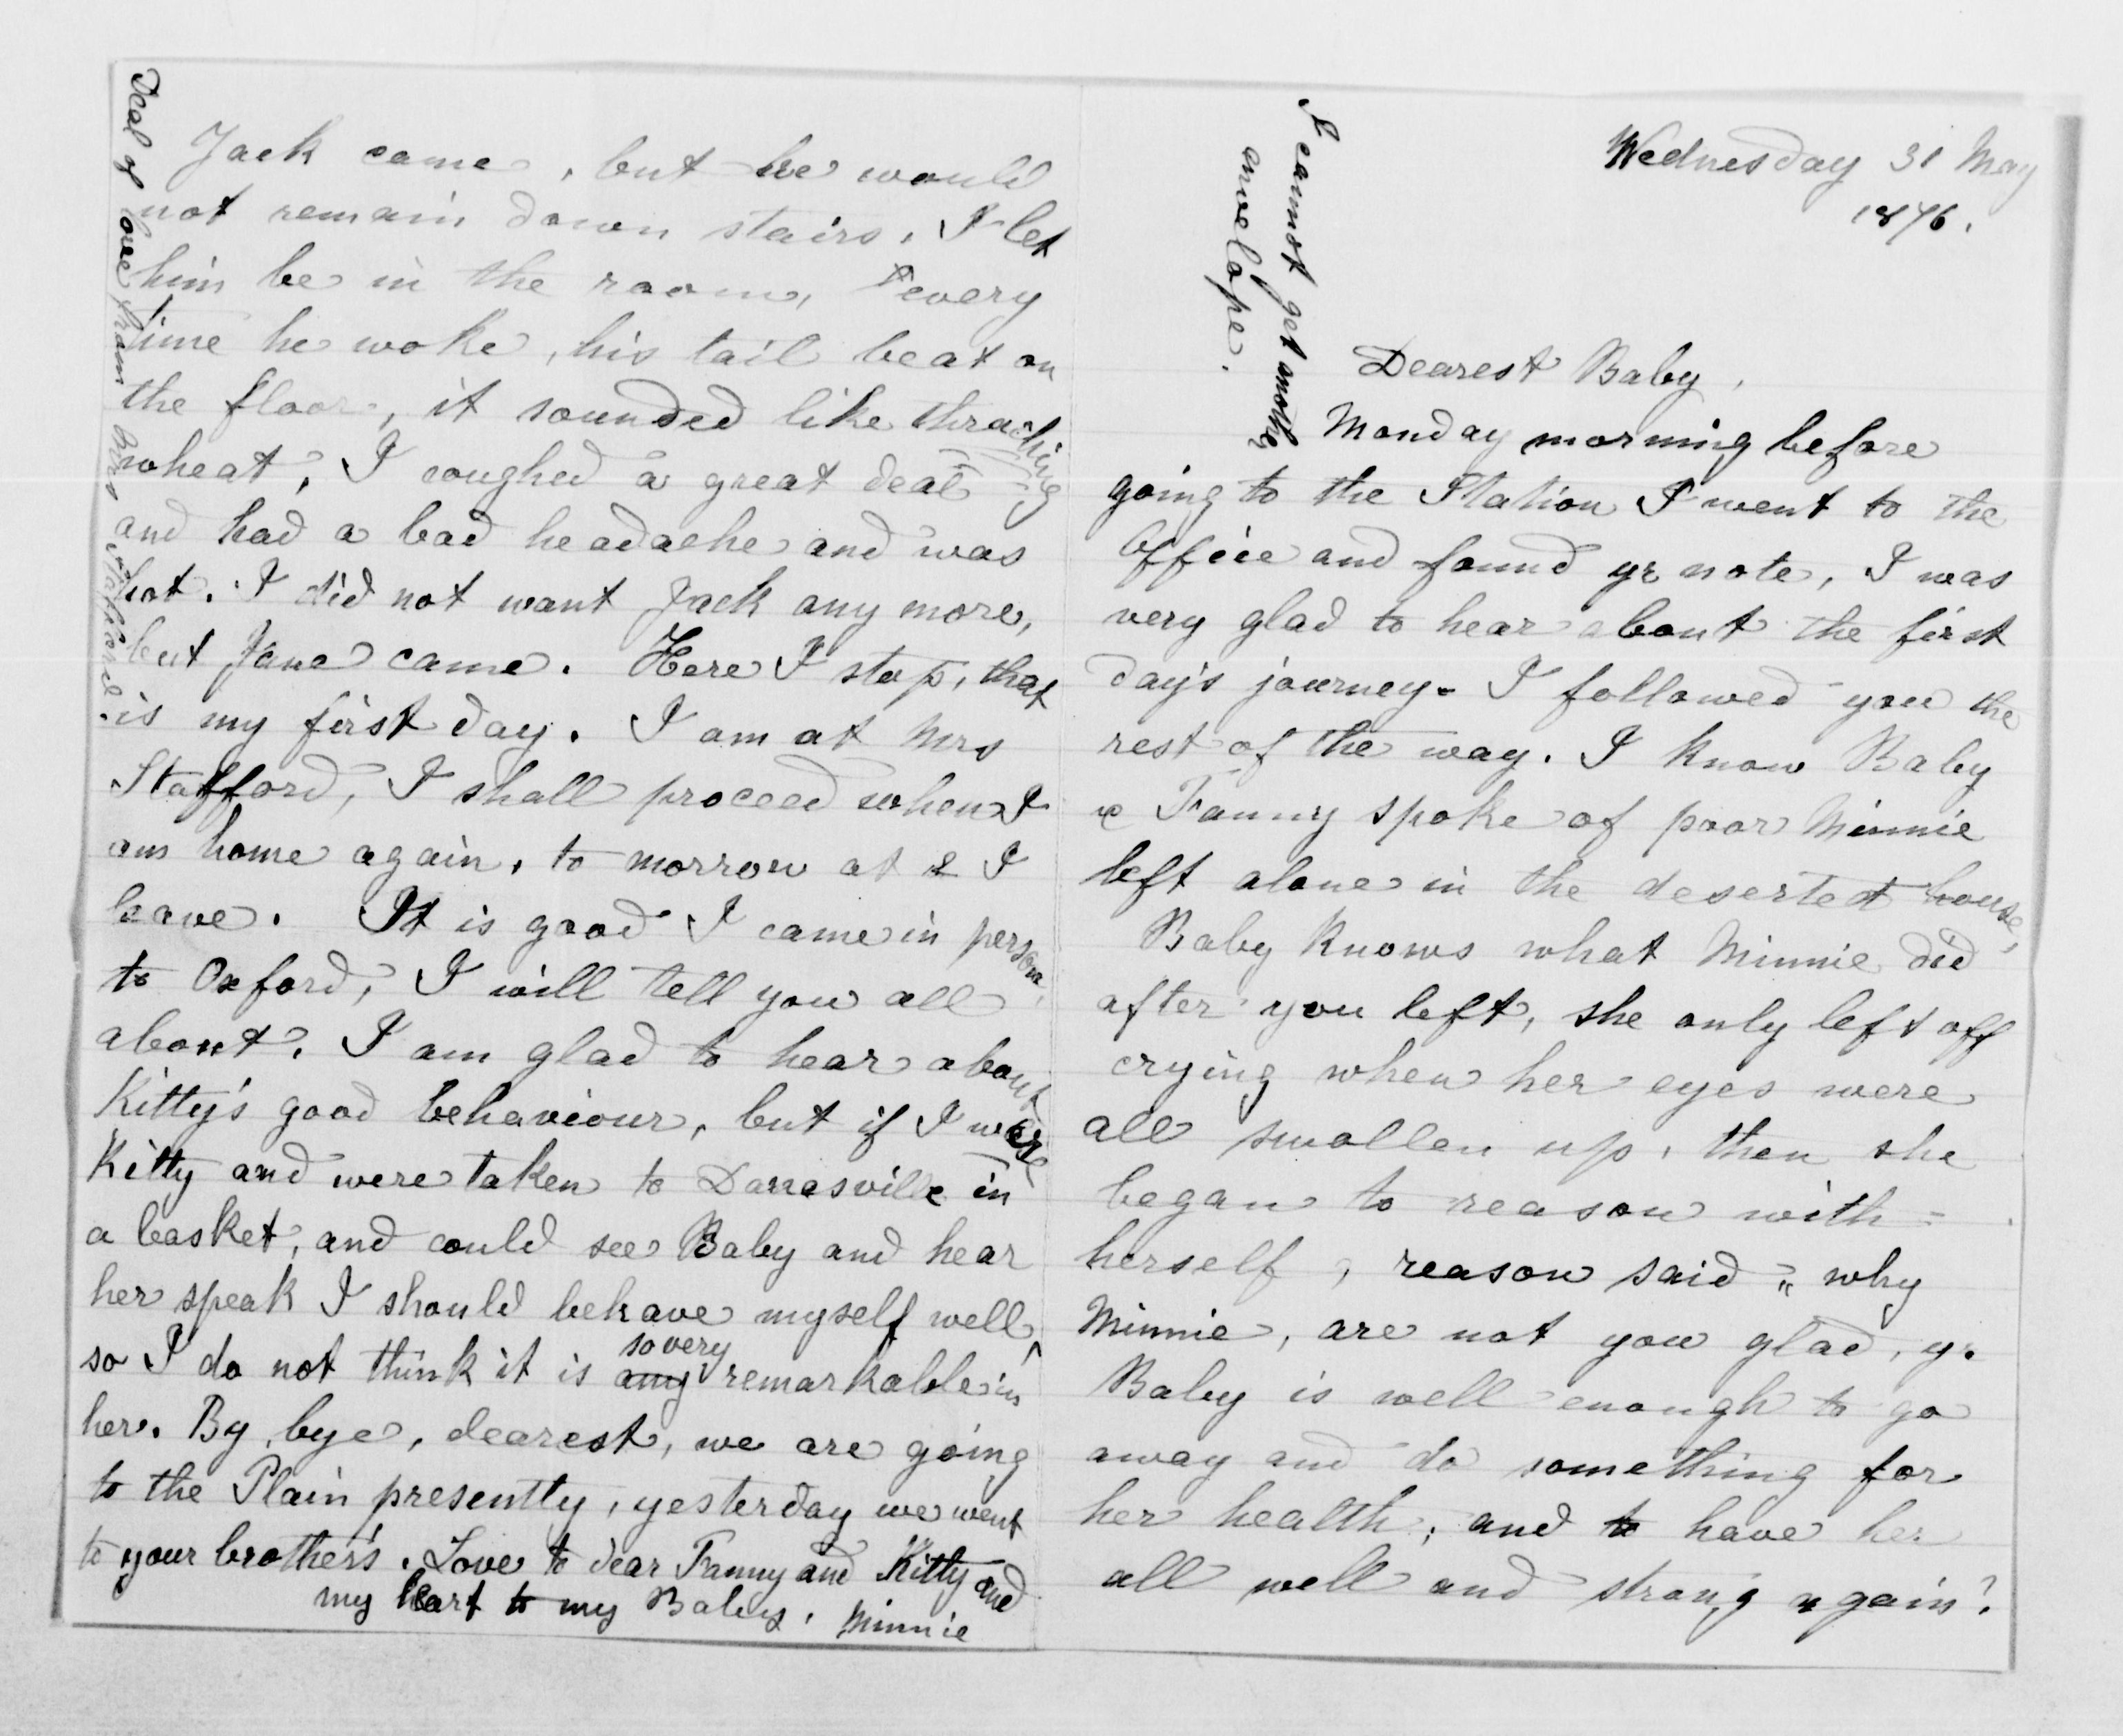 Wednesday 31 May
1876.
I cannot get another
anvelope.
Dearest Baby,
Monday morning before
going to the Station I went to the
office and found yr note, I was
very glad to hear about the first
day's journey. I followed you the
rest of the way. I know Baby
& Fanny spoke of poor Minnie
left alone in the deserted house,
Baby knows what Minnie did
after you left, she only left off
crying when her eyes were
all swollen up, then she
began to reason with=
herself, reason said „ why
Minnie, are not you glad, yr
Baby is well enough to go
away and do something for
her health, and to have her
all well and strong again?
Jack came, but he would
not remain down stairs, I let
him be in the room, every
time he woke, his tail beat on
the floor, it sounded like thraching
wheat, I coughed a great deal
and had a bad headache and was
hot. I did not want Jack any more,
but Jane came. Here I stop, that
is my first day. I am at Mrs
Stafford, I shall proceed when I
am home again, to morrow at 2 I
leave. It is good I came in person
to Oxford, I will tell you all
about. I am glad to hear about
Kitty's good behaviour, but if I were
Kitty and were taken to Danesville in
a basket, and could see Baby and hear
her speak I should behave myself well,
so I do not think it is any so very remarkable in
her. By bye, dearest, we are going
to the Plain presently, yesterday we went
to your brother's. Love to dear Fanny and Kitty and
my heart to my Baby, Minnie
Deal of love from Mrs Stafford.